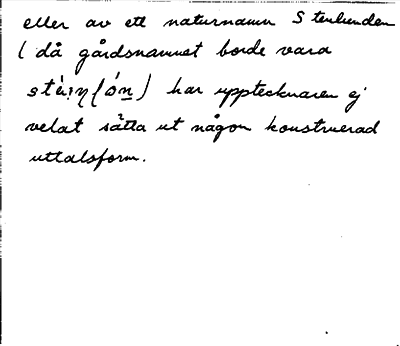 eller av ett naturnamn Stenlunden
(då gårdsnamnet borde vara
har upptecknaren ej
velat sätta ut någon konstruerad
uttalsform.